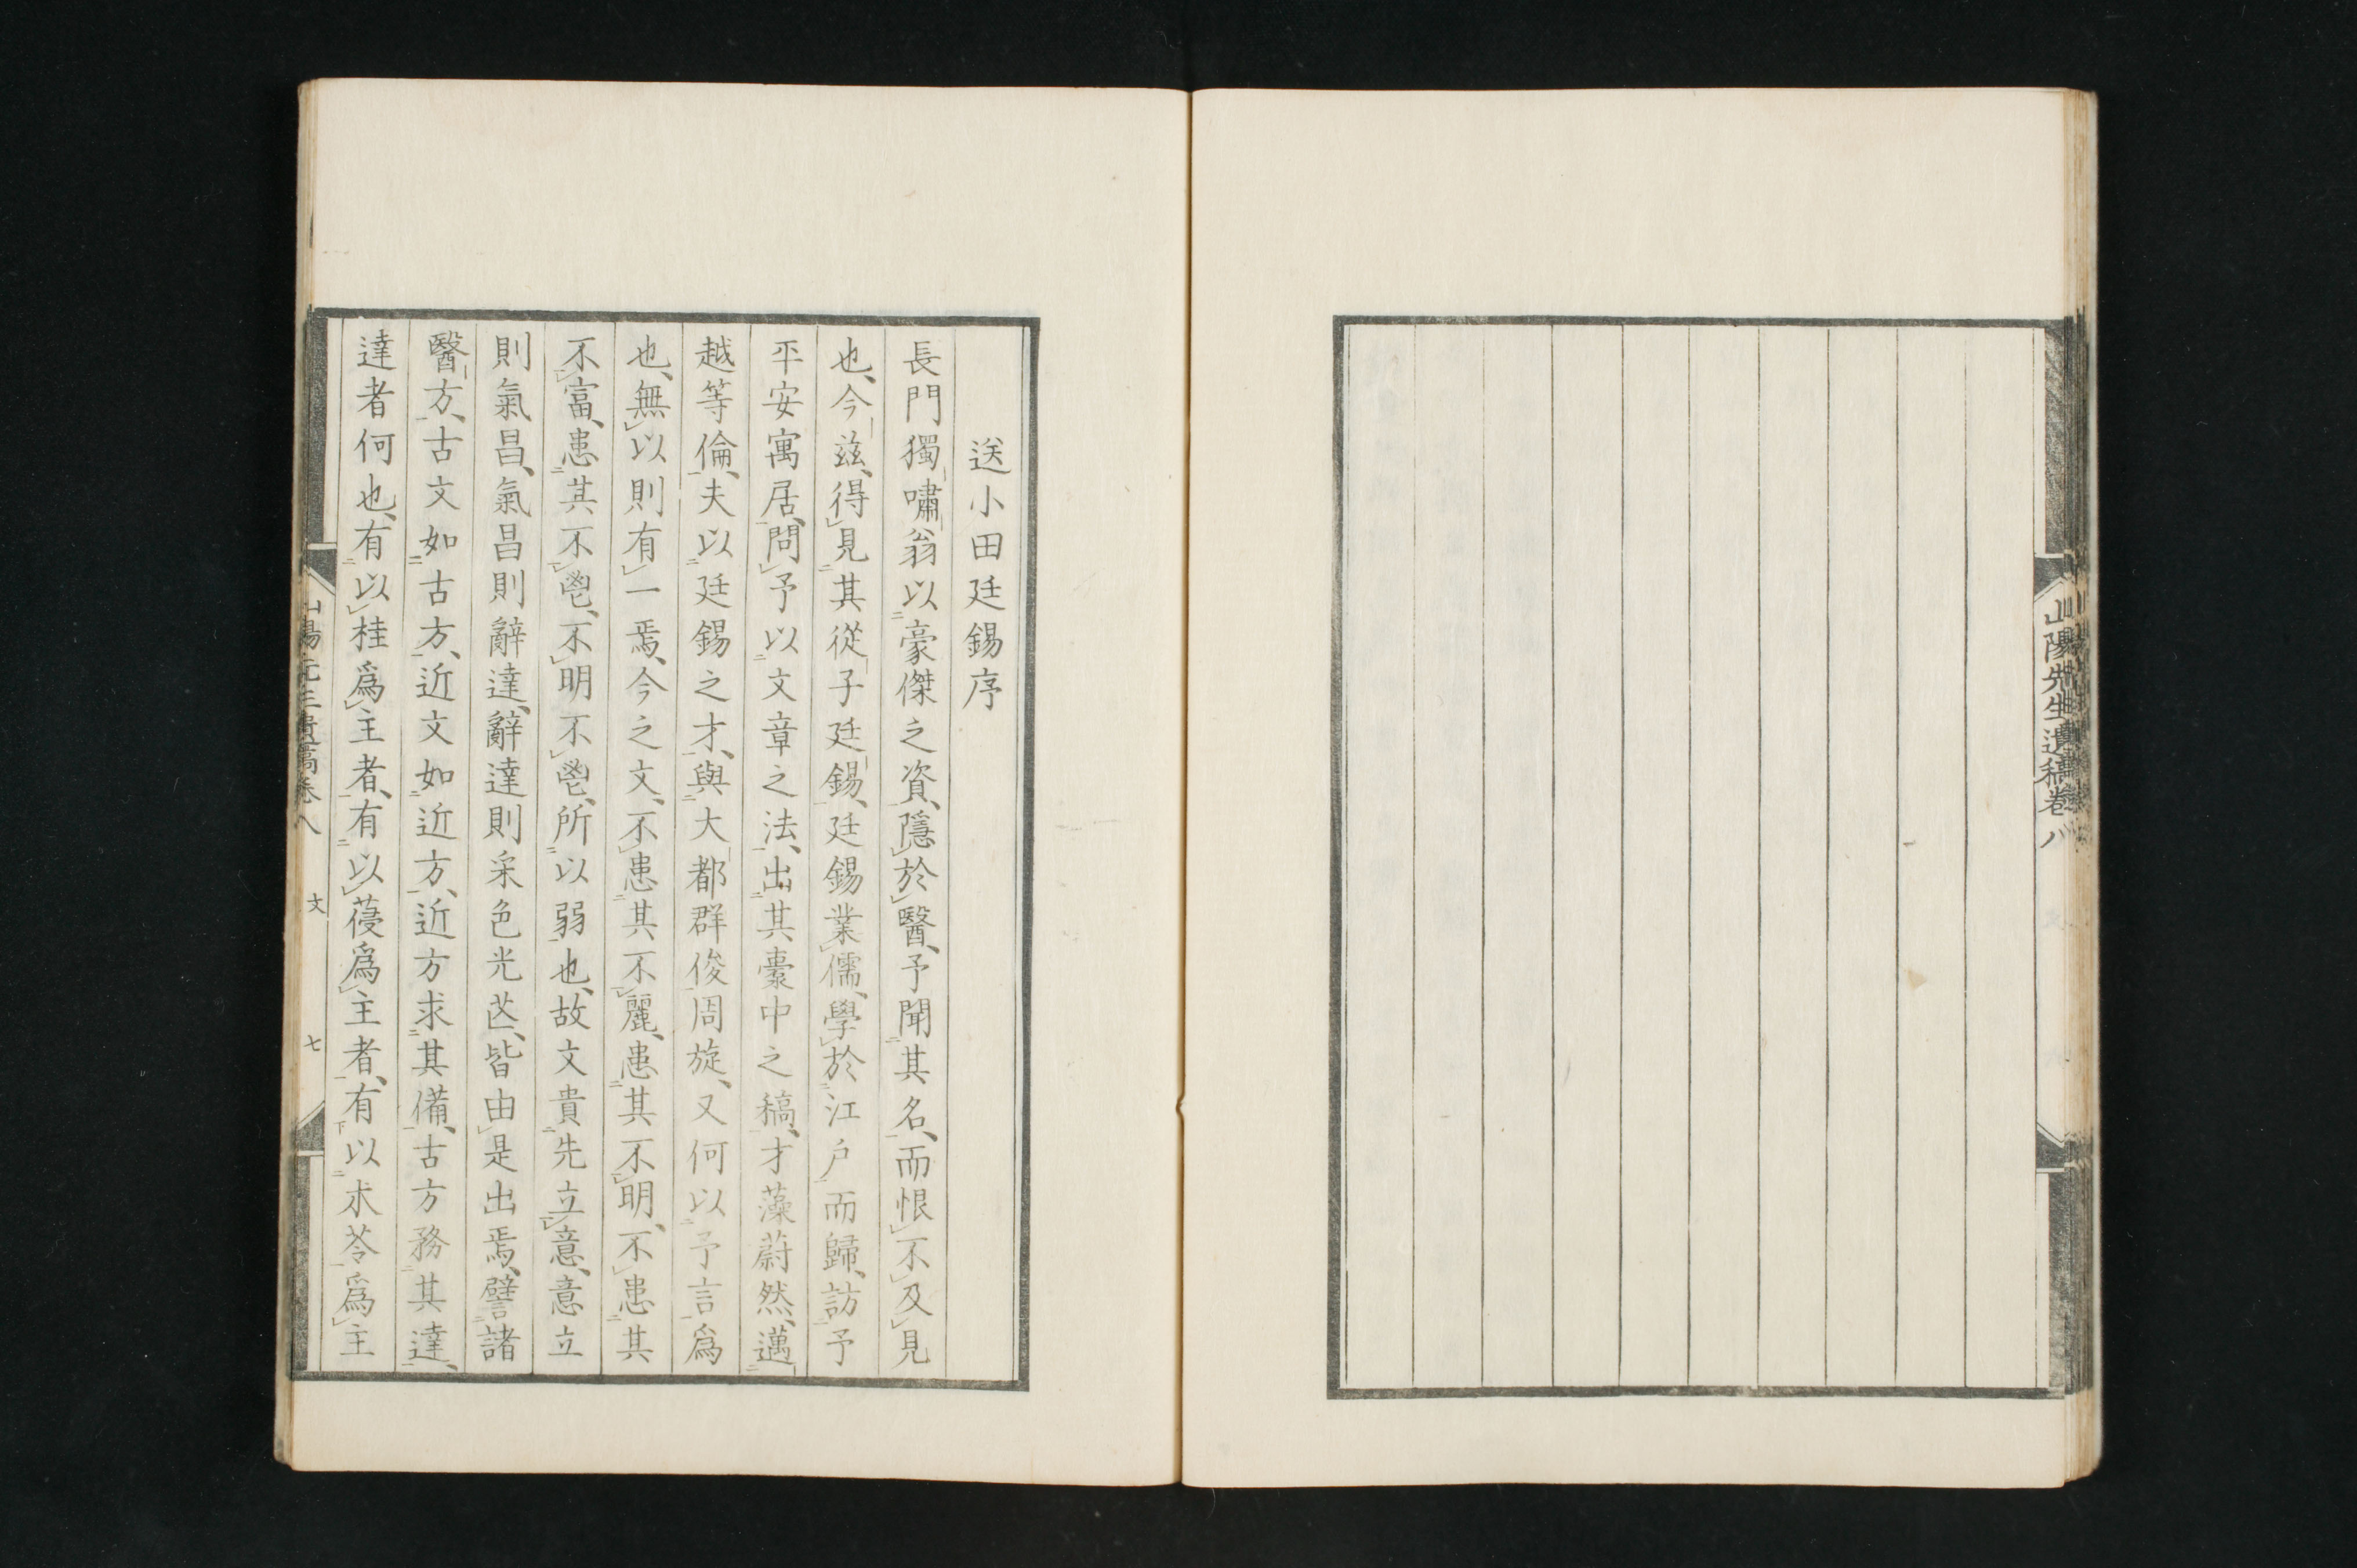 山陽先生遺稿卷八
送小田廷錫序
長門獨嘯翁以豪傑之資、隱於醫、予聞其名、而恨不及見
也、今茲、得見其從子廷錫、廷錫業儒、學於江戶而歸、訪予
平安寓居、問予以文章之法、出其橐中之稿、才藻蔚然、邁
越等倫、夫以廷錫之才、與大都群俊周旋、又何以予言爲
也、無以則有一焉、今之文、不患其不麗、患其不明、不患其
不富、患其不鬯、不明不鬯、所以弱也、故文貴先立意、意立
則氣昌、氣昌則辭達、辭達則采色光芒、皆由是出焉、譬諸
醫方、古文如古方、近文如近方、近方求其備、古方務其達、
達者何也、有以桂爲主者、有以葠爲主者、有以朮苓爲主
山陽先生遺稿卷八 文 七